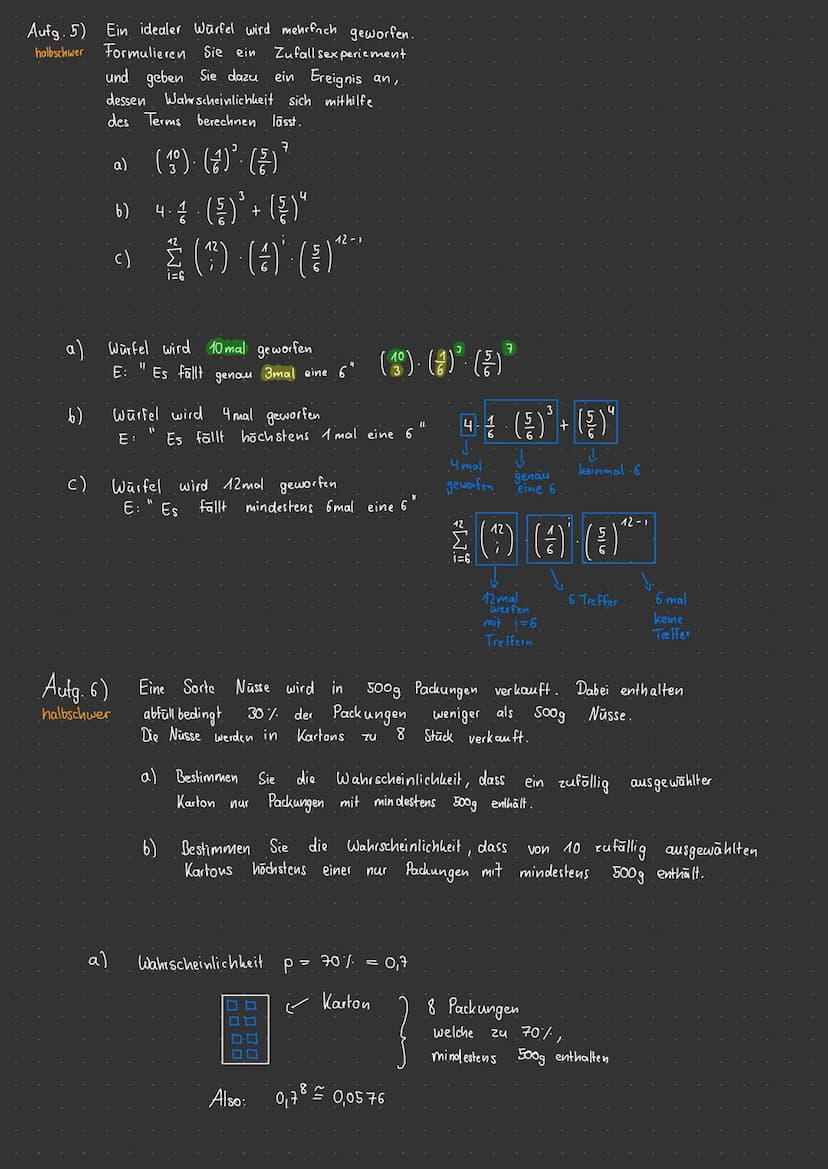 Aufg. 5) Ein idealer Würfel wird mehrfach geworfen.
halbschwer Formulieren Sie ein Zufallsexperiement
und geben Sie dazu ein Ereignis an,
dessen Wahrscheinlichkeit sich mithilfe
des Terms berechnen lässt.
a) (10 3) · (1/6)^3 · (5/6)^7
b) 4 · 1/6 · (5/6)^3 + (5/6)^4
c) 12 Σ i=6 (12 i) · (1/6)^i · (5/6)^12-i
a) Würfel wird 10mal geworfen
E: "Es fällt genau 3mal eine 6" (10 3) · (1/6)^3 · (5/6)^7
b) Würfel wird 4mal geworfen
E: "Es fällt höchstens 1mal eine 6" 4 · 1/6 · (5/6)^3 + (5/6)^4
4mal geworfen
genau eine 6
keinmal 6
c) Würfel wird 12mal geworfen
E: "Es fällt mindestens 6mal eine 6"
12 Σ i=6 (12 i) · (1/6)^i · (5/6)^12-i
12mal werfen mit i=6 Treffern
6 Treffer
6 mal keine Treffer
Aufg. 6) Eine Sorte Nüsse wird in 500g Packungen verkauft. Dabei enthalten
halbschwer abfüllbedingt 30% der Packungen weniger als 500g Nüsse.
Die Nüsse werden in Kartons zu 8 Stück verkauft.
a) Bestimmen Sie die Wahrscheinlichkeit, dass ein zufällig ausgewählter
Karton nur Packungen mit mindestens 500g enthält.
b) Bestimmen Sie die Wahrscheinlichkeit, dass von 10 zufällig ausgewählten
Kartons höchstens einer nur Packungen mit mindestens 500g enthält.
a) Wahrscheinlichkeit p = 70% = 0,7
Karton
8 Packungen
welche zu 70%,
mindestens 500g enthalten
Also: 0,7^8 ≅ 0,0576